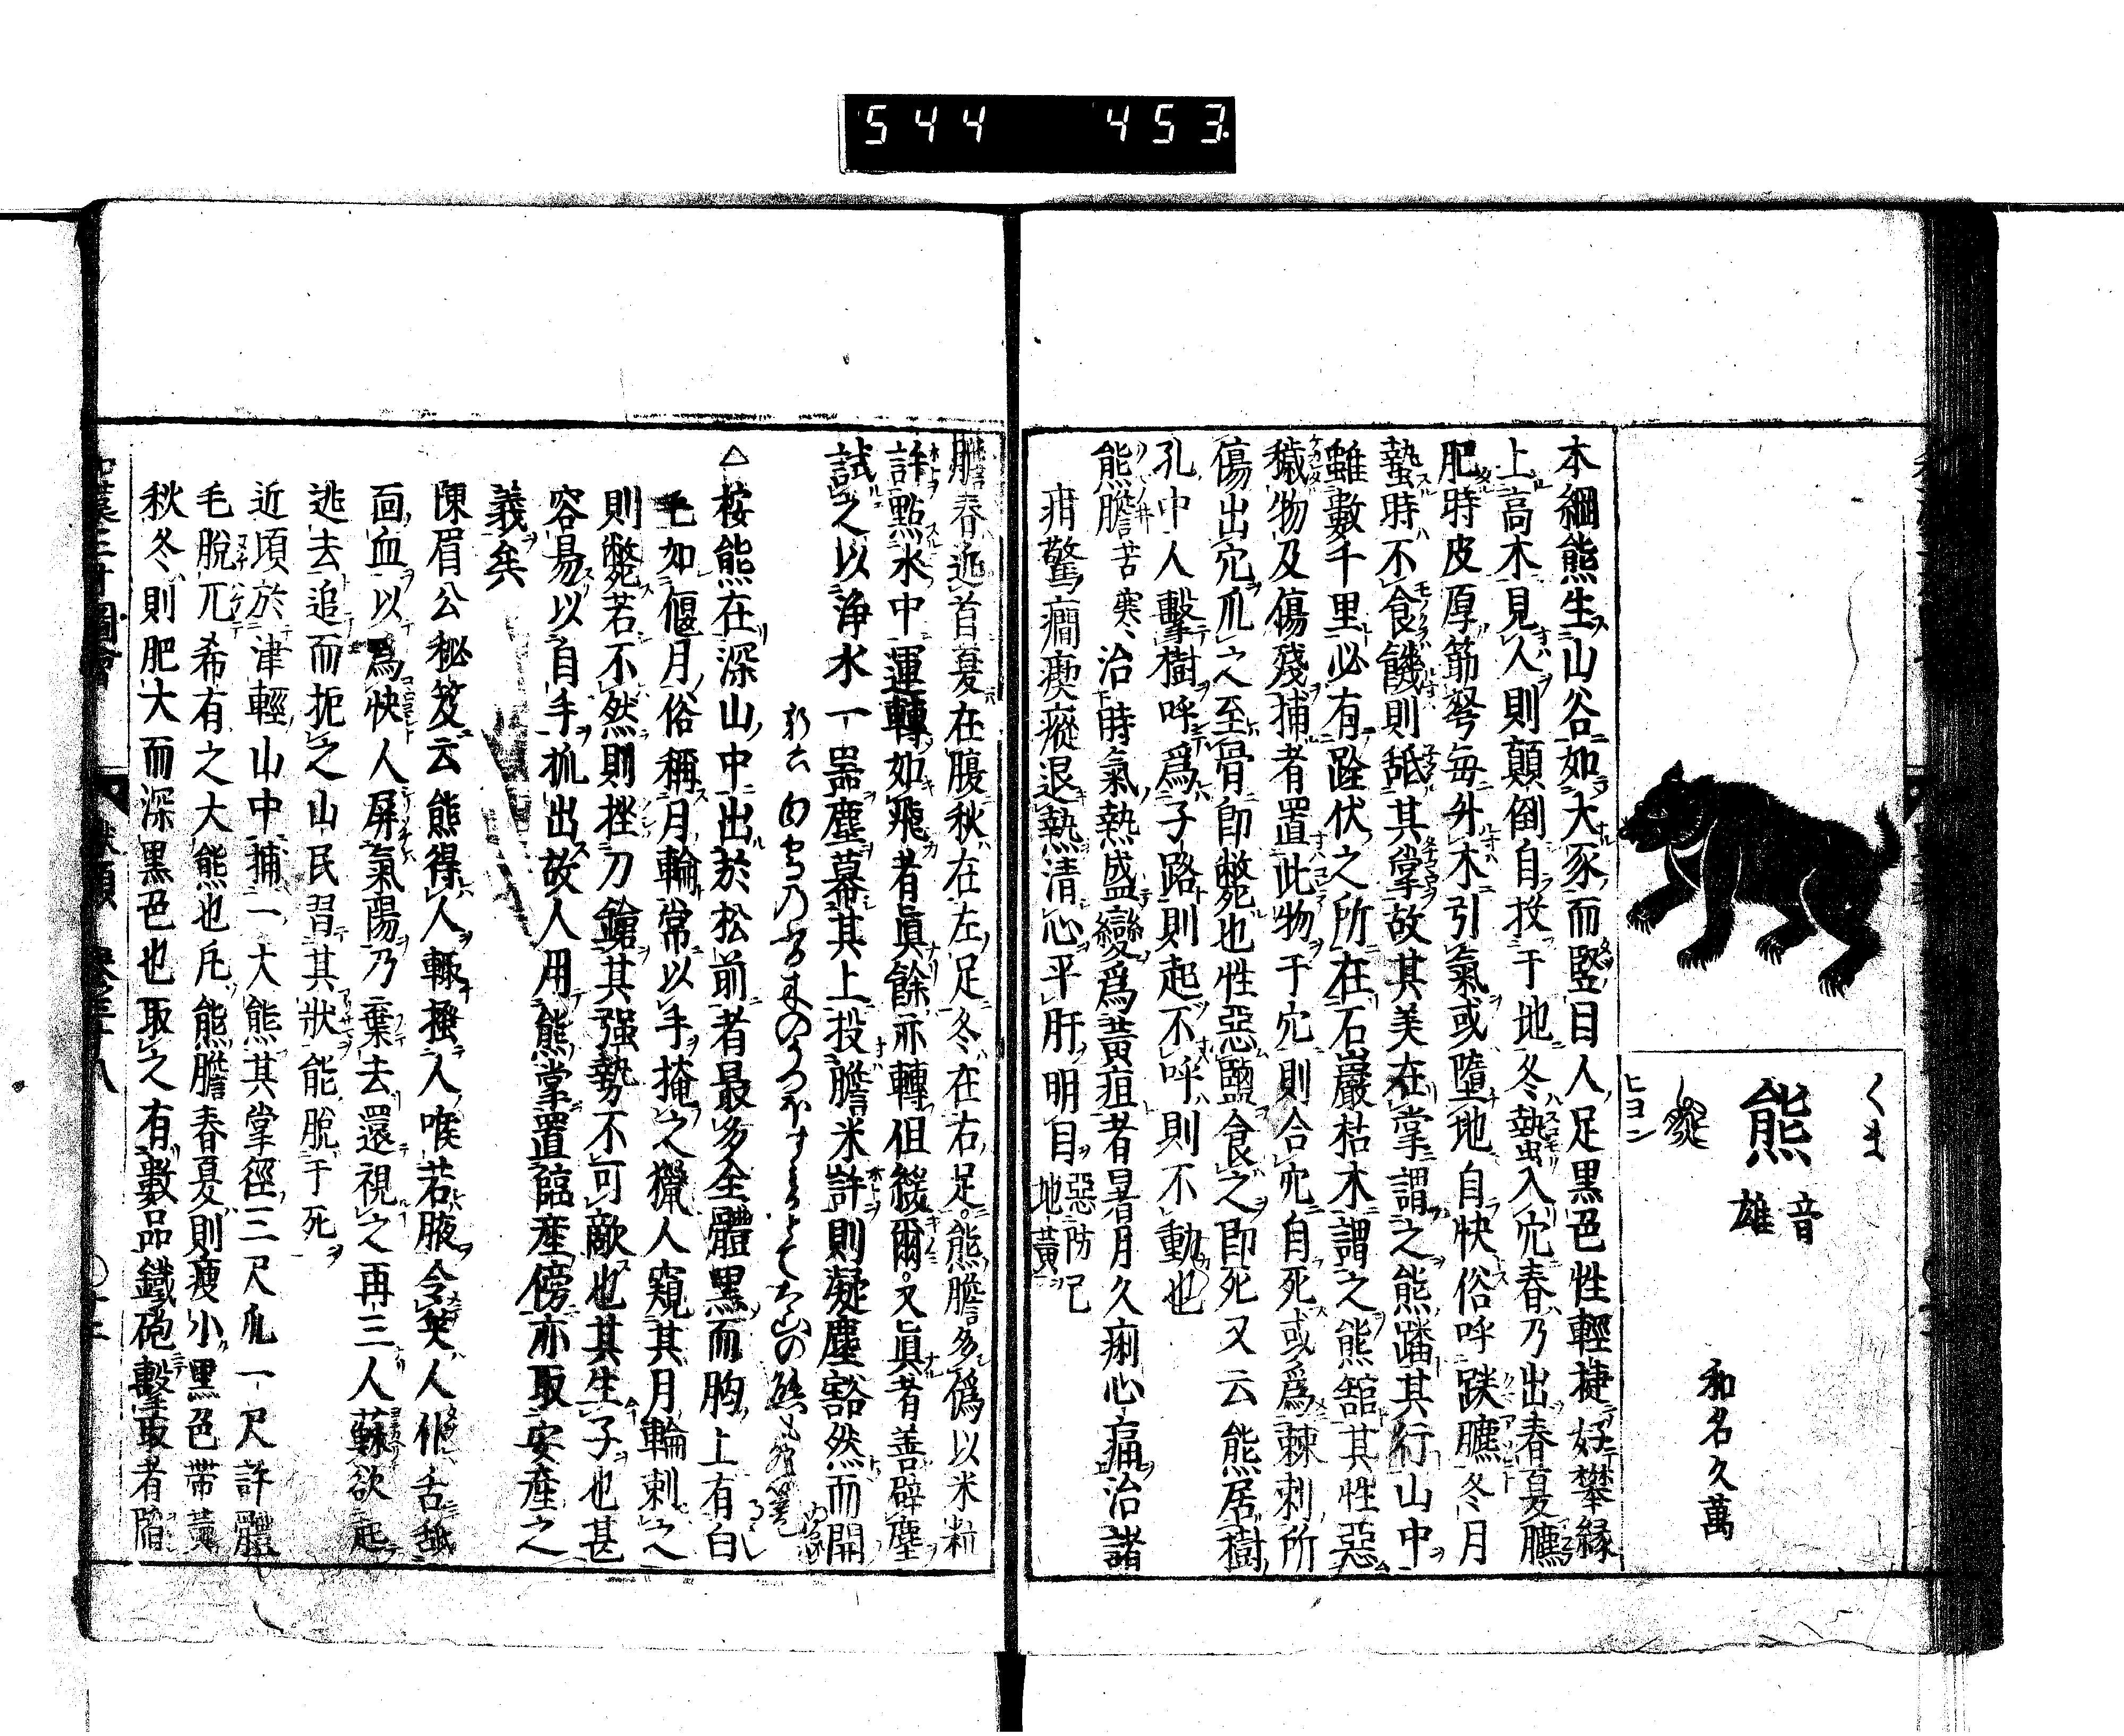 544 453.
くま
熊 音雄
和名久萬
ヒヨン
本綱熊生山谷如大豕而竪目人足黒色性輕捷好攀縁
上高木見人則顛倒自投于地冬蟄入穴春乃出春夏臕
肥時皮厚筋弩毎升木引氣或墮地自快俗呼跌臕冬月
蟄時不食饑則舐其掌故其美在掌謂之熊蹯其行山中
雖數千里必有跧伏之所在石巖枯木謂之熊舘其性惡
穢物及傷殘捕者置此物于穴則合穴自死或爲棘刺所
傷出穴爪之至骨即斃也性惡鹽食之即死又云熊居樹
孔中人擊樹呼爲子路則起不呼則不動也
熊膽苦寒治時氣熱盛變爲黃疸者暑月久痢心痛治諸
疳驚癇瘈瘲退熱清心平肝明目惡防己地黄
膽春近首夏在腹秋在左足冬在右足熊膽多偽以米粒
許點水中運轉如飛者眞餘亦轉但緩爾又眞者善辟塵
試之以浄水一噐塵幕其上投膽米許則凝塵豁然而開
△桉熊在深山中出於松前者最多全體黒而胸上有白
毛如偃月俗稱月輪常以手掩之獵人窺其月輪刺之
則斃若不然則挫刀鎗其强勢不可敵也其生子也甚
容易以自手抓出故人用熊掌置臨産傍亦取安産之
義矣
陳眉公秘笈云熊得人輙搔人喉若腋令笑人仆舌舐
面血以爲快人屏氣陽乃棄去還視之再三人蘇欲起
逃去追而扼之山民習其狀能脫于死
近頃於津輕山中捕一大熊其掌徑三尺爪一尺許體
毛脫兀希有之大熊也凡熊膽春夏則痩小黒色帶黄
秋冬則肥大而深黒色也取之有數品鐵砲擊取者陷